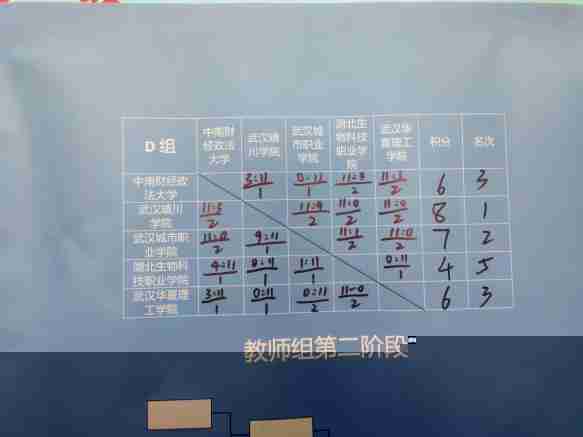 D组 中南财经政法大学 武汉晴川学院 武汉城市职业学院 湖北生物科技职业学院 武汉华夏理工学院 积分 名次
中南财经政法大学 3:11/1 0:11/1 11:3/2 11:3/2 6 3
武汉晴川学院 11:3/2 11:9/2 11:0/2 11:0/2 8 1
武汉城市职业学院 11:0/2 9:11/1 11:1/2 11:0/2 7 2
湖北生物科技职业学院 4:11/1 0:11/1 1:11/1 0:11/1 4 5
武汉华夏理工学院 3:11/1 0:11/1 0:11/2 11-0/2 6 3
教师组第二阶段